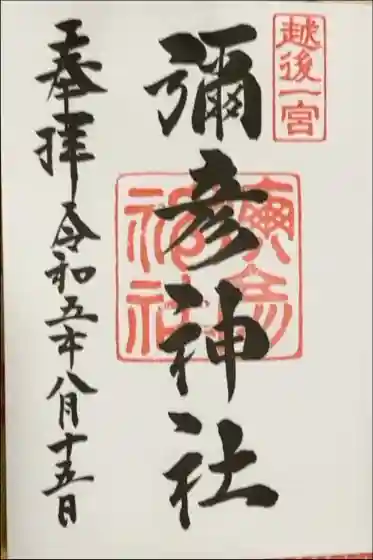 越後一宮
彌彦神社
彌彦神社
奉拝
令和五年八月十五日